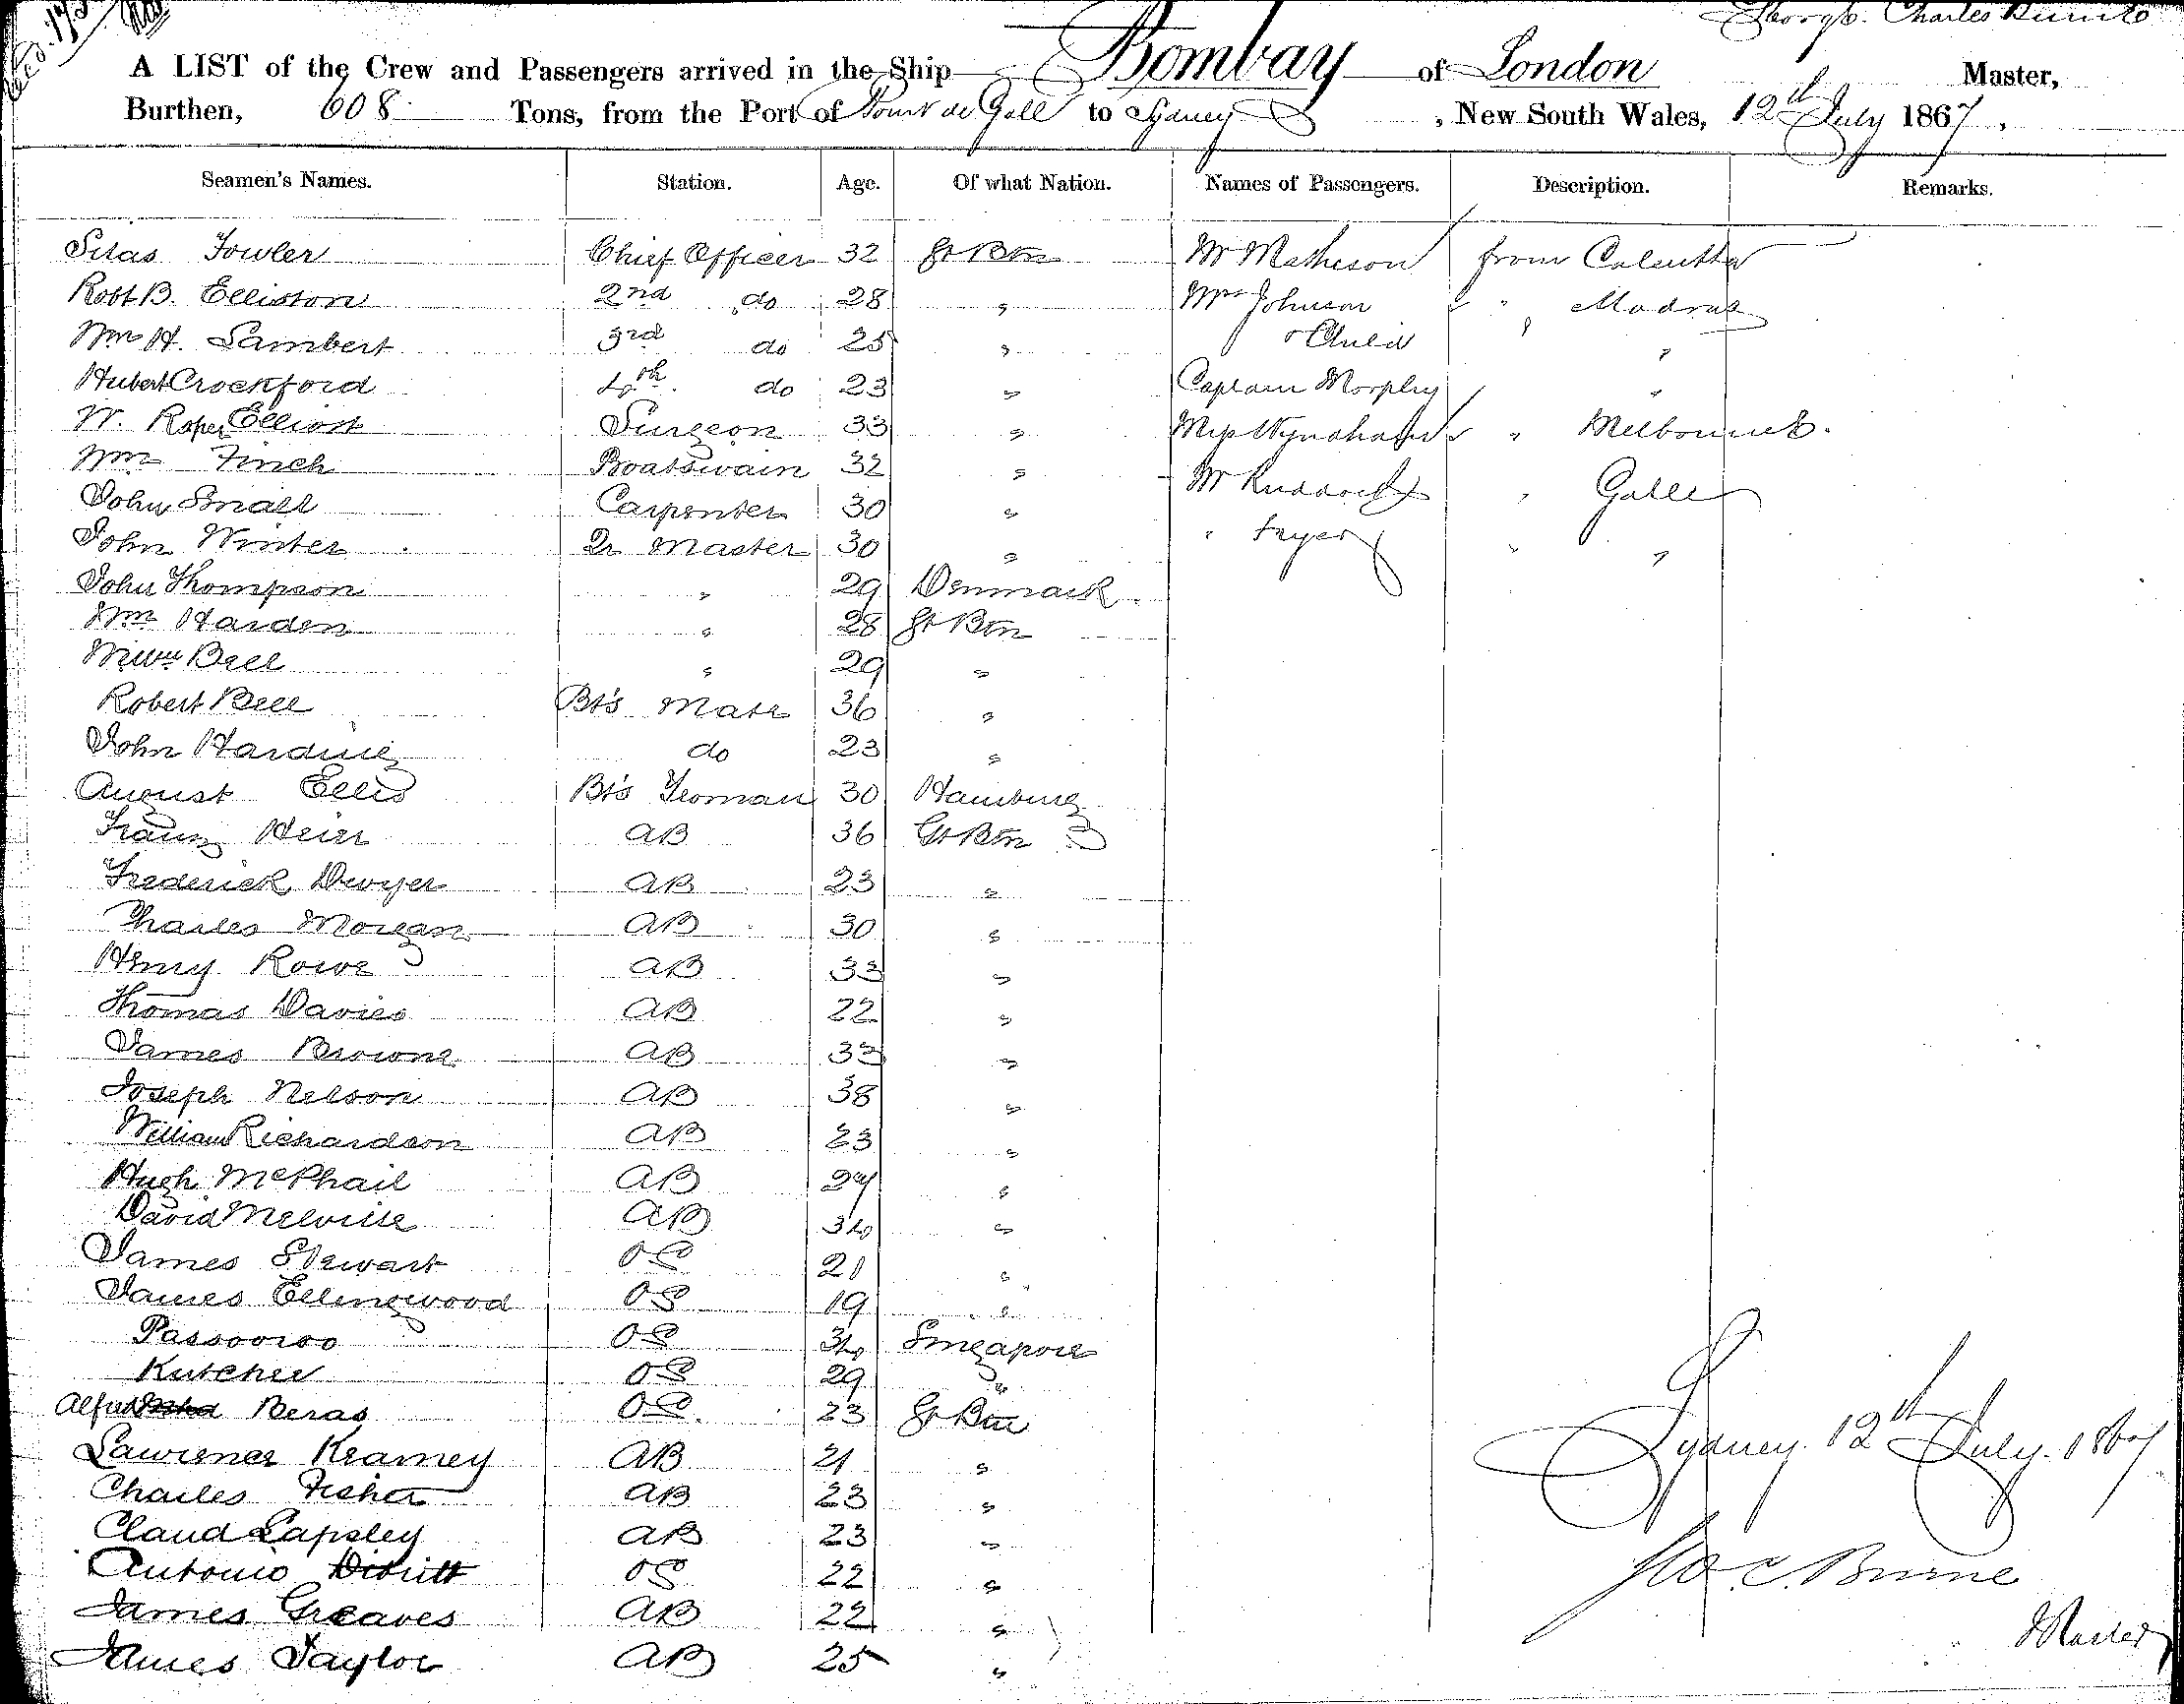 George Charles Burne
A LIST of the Crew and Passengers arrived in the Ship Bombay of London Master,
Burthen, 608 Tons, from the Port of Point de Gall to Sydney, New South Wales, 12th July 1867,
Seamen's Names. Station. Age. Of what Nation. Names of Passengers. Description. Remarks.
Silas Fowler Chief Officer 32 Gt Btn Mr Matheson from Calcutta
Robt B. Elliston 2nd do 28 " Mrs Johnson " Madras
Wm H. Lambert 3rd do 25 " & Child " "
Hubert Crockford 4th do 23 " Captain Morphy "
W. Roper Elliott Surgeon 33 " Miss Wyndham " Melbourne.
Wm Finch Boatswain 32 " Mr Ruddock " Galle
John Small Carpenter 30 "
John Winter Qr Master 30 " " Fryer " "
John Thompson " 29 Denmark
Wm Harden " 28 Gt Btn
Willm Bell " 29 "
Robert Bell Bt's Mate 36 "
John Harding do 23 "
August Ellis Bt's Yeoman 30 Hamburg
Franz Heier AB 36 Gt Btn
Frederick Dwyer AB 23 "
Charles Morgan AB 30 "
Henry Rowe AB 33 "
Thomas Davies AB 22 "
James Browne AB 33 "
Joseph Nelson AB 38 "
William Richardson AB 23 "
Hugh McPhail AB "
David Melville AB 34 "
James Stewart OS 21 "
James Ellingwood OS 19 "
Passooroo OS 34 Singapore
Kutcher OS 29 "
Alfred Beras OS 23 Gt Btn
Lawrence Kramey AB 21 "
Charles Fisher AB 23 "
Claud Lapsley AB 23 "
Antonio OS 22 "
James Greaves AB 22 "
James Taylor AB 25 "
Sydney 12th July 1867
Geo. C. Burne
Master